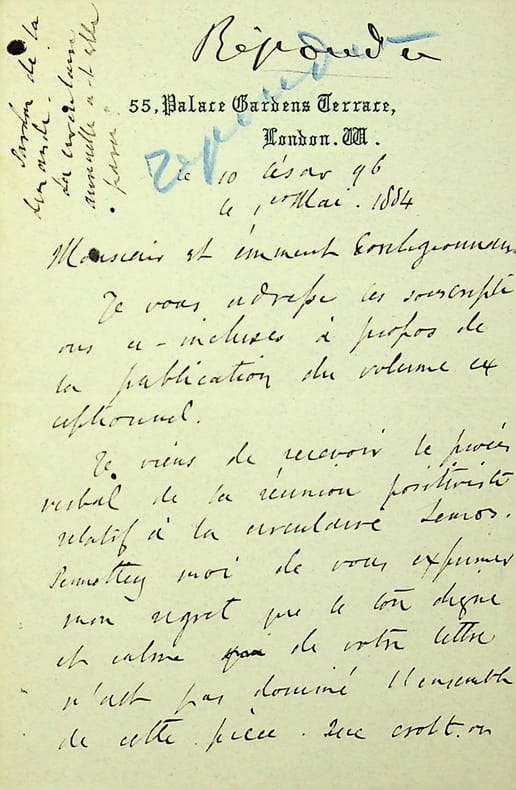 Répondu
Répondu
55, Palace Gardens Terrace,
London. W.
le 10 César 96
le 1er Mai. 1884
Pardon de la
demande.
La circulaire
annuelle a-t-elle
paru?
Monsieur et éminent Coreligionnaire
Je vous adresse les souscripti
ons ci-incluses à propos de
la publication du volume ex
ceptionnel.
Je viens de recevoir le procès
verbal de la réunion positiviste
relatif à la circulaire Lemos.
Permettez moi de vous exprimer
mon regret que le ton digne
et calme de votre lettre
n'ait pas dominé l'ensemble
de cette pièce. Que croit-on